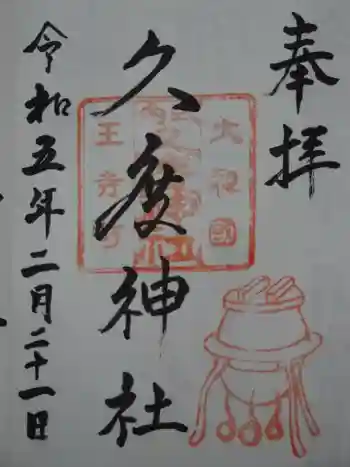 奉拝
久度神社
令和五年二月二十一日
大和國
王寺町